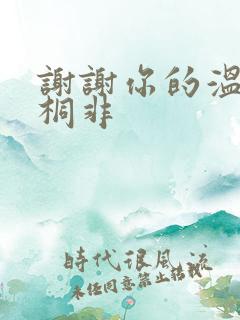 謝謝你的溫
桐非
時代很風流
未任同意禁止轉載